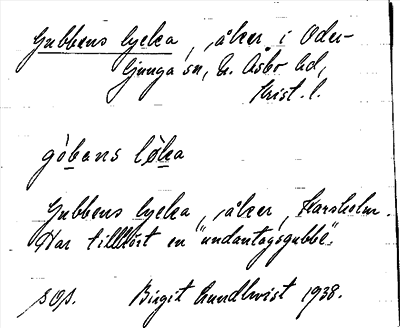 Gubbens lycka, åker i Oder-
ljunga sn, N. Åsbo hd,
Krist. l.
gòbans løka
Gubbens lycka, åker, Karsholm.
Har tillhört en "undantagsgubbe".
sop. Birgit Lundkvist 1938.